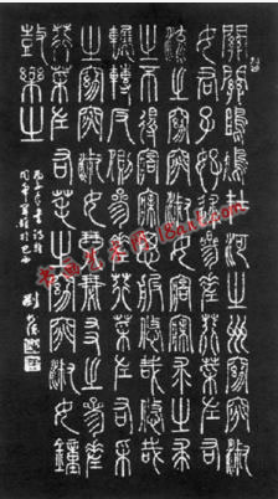 關關雎鳩在河之洲窈窕淑
女君子好逑參差荇菜左右
流之窈窕淑女寤寐求之求
之不得寤寐思服悠哉悠哉
輾轉反側參差荇菜左右采
之窈窕淑女琴瑟友之參差
荇菜左右芼之窈窕淑女鐘
鼓樂之
书画艺术网 18art.com